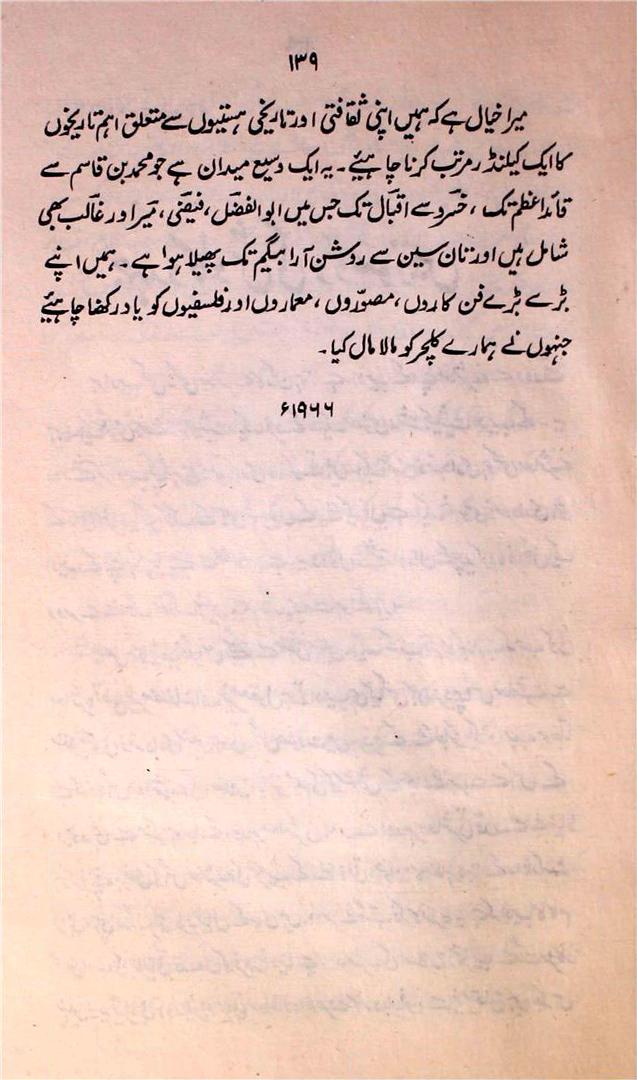 ۱۳۹
میرا خیال ہے کہ ہمیں اپنی ثقافتی اور تاریخی ہستیوں سے متعلق اہم تاریخوں
کا ایک کیلنڈر مرتب کرنا چاہیئے۔ یہ ایک وسیع میدان ہے جو محمد بن قاسم سے
قائداعظم تک، خسرو سے اقبال تک جس میں ابوالفضل، فیضی، میر اور غالب بھی
شامل ہیں اور تان سین سے روشن آرا بیگم تک پھیلا ہوا ہے۔ ہمیں اپنے
بڑے بڑے فن کاروں، مصوّروں، معماروں اور فلسفیوں کو یاد رکھنا چاہیئے
جنہوں نے ہمارے کلچر کو مالا مال کیا۔
۱۹۶۶ء